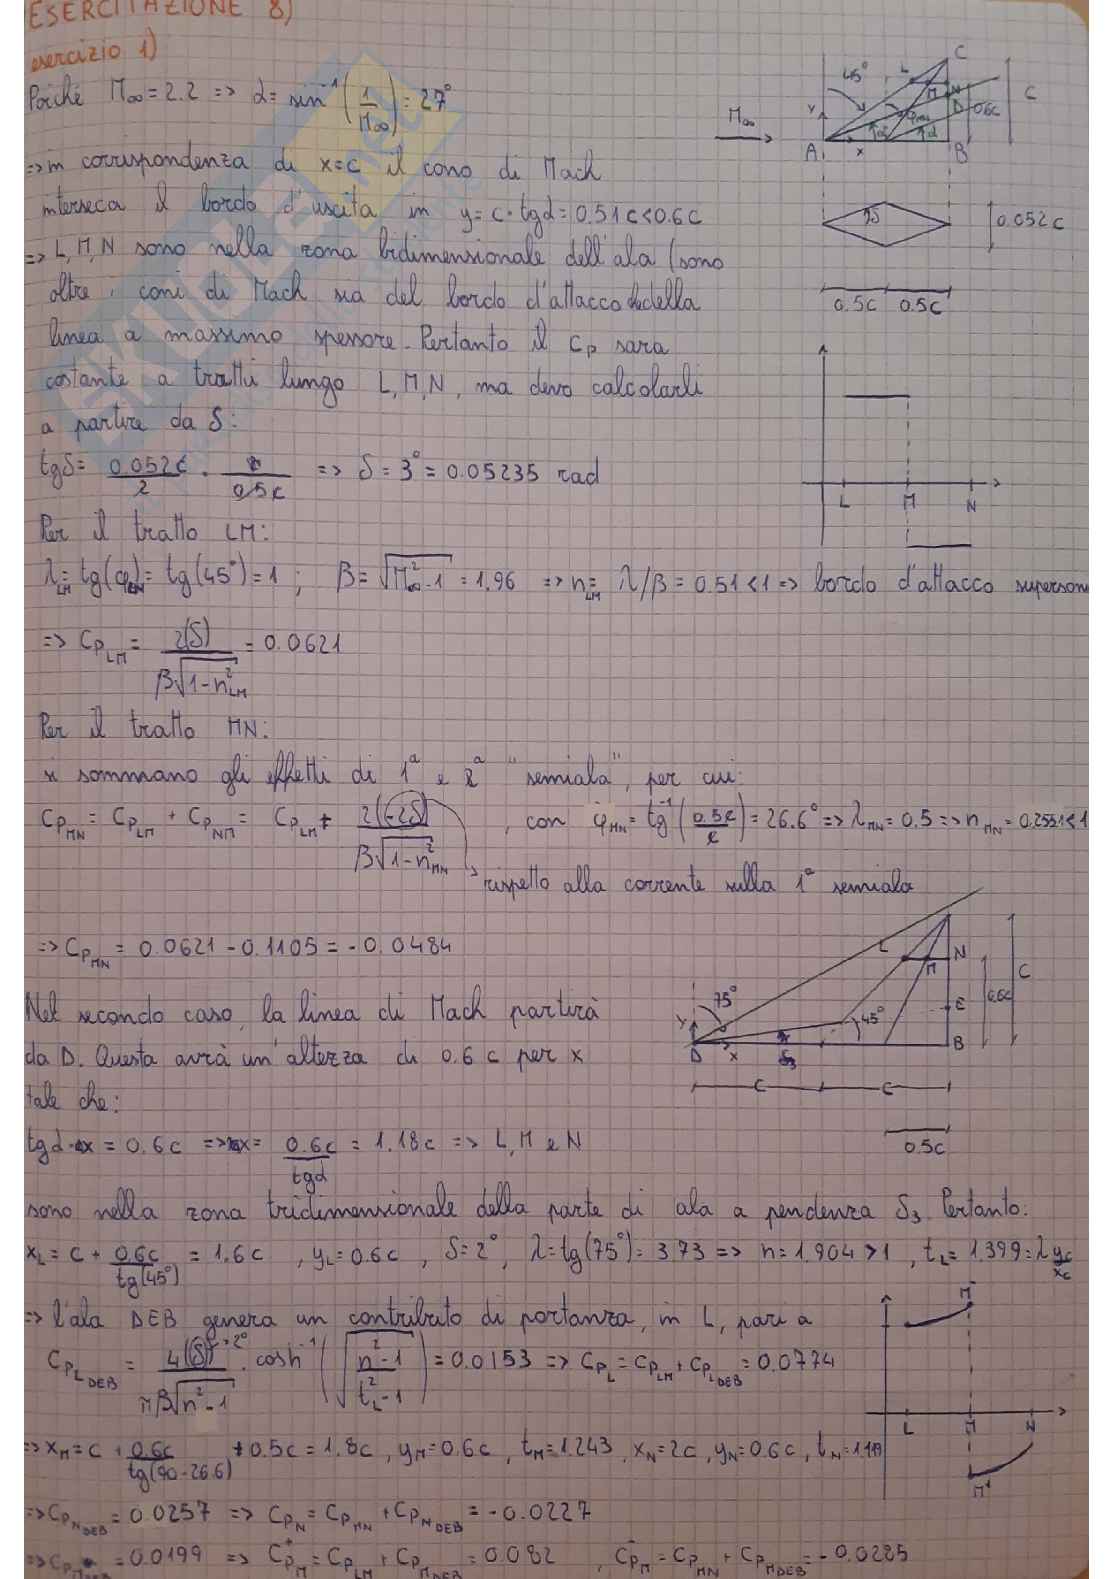 ESERCITAZIONE 8)
esercizio 1)
Poiché M∞ = 2.2 => α = sin⁻¹(1/M∞) = 27°
=> in corrispondenza di x=c il cono di Mach
interseca il bordo d'uscita in y = c·tgα = 0.51c < 0.6c
=> L, M, N sono nella zona bidimensionale dell'ala (sono
oltre i coni di Mach sia del bordo d'attacco che della
linea a massimo spessore. Pertanto il Cp sarà
costante a tratti lungo L, M, N, ma devo calcolarli
a partire da δ:
tgδ = 0.052c/2 · 1/0.5c => δ = 3° = 0.05235 rad
Per il tratto LM:
λLM = tg(φLM) = tg(45°) = 1 ; β = √(M∞² - 1) = 1.96 => nLM = λ/β = 0.51 < 1 => bordo d'attacco superson
=> CpLM = 2(δ) / β√(1-n²LM) = 0.0621
Per il tratto MN:
si sommano gli effetti di 1ª e 2ª "semiala", per cui:
CpMN = CpLM + CpNM = CpLM + 2(-2δ) / β√(1-n²MN) , con φMN = tg⁻¹(0.5c/c) = 26.6° => λMN = 0.5 => nMN = 0.2551 < 1
rispetto alla corrente sulla 1ª semiala
=> CpMN = 0.0621 - 0.1105 = -0.0484
Nel secondo caso, la linea di Mach partirà
da D. Questa avrà un'altezza di 0.6c per x
tale che:
tgα·x = 0.6c => x = 0.6c/tgα = 1.18c => L, M e N
sono nella zona tridimensionale della parte di ala a pendenza δ3. Pertanto:
xL = c + 0.6c/tg(45°) = 1.6c , yL = 0.6c , δ = 2° , λ = tg(75°) = 3.73 => n = 1.904 > 1 , tL = 1.399 = λ yc/xc
=> l'ala DEB genera un contributo di portanza, in L, pari a
CpL DEB = 4(δ)→2° / πβ√(n²-1) · cosh⁻¹(√((n²-1)/(tL²-1))) = 0.0153 => CpL = CpLM + CpL DEB = 0.0774
=> xM = c + 0.6c/tg(90-26.6) + 0.5c = 1.8c , yM = 0.6c , tM = 1.243 , xN = 2c , yN = 0.6c , tN = 1.119
=> CpN DEB = 0.0257 => CpN = CpMN + CpN DEB = -0.0227
=> CpM DEB = 0.0199 => C⁺pM = CpLM + CpM DEB = 0.082 , C⁻pM = CpMN + CpM DEB = -0.0285
M∞
45°
L
C
M
N
D
0.6c
C
y
x
A
B
0.052c
0.5c 0.5c
L M N
75°
45°
L
N
M
E
C
0.6c
y
x
D
δ3
B
c c
0.5c
M⁻
L M N
M⁺
SKUOLA.net